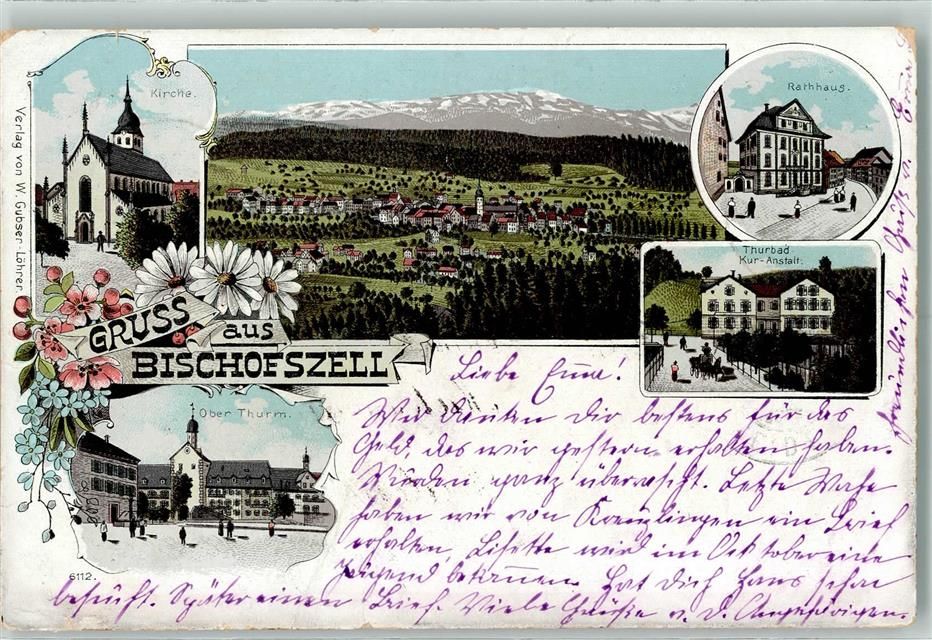 Kirche.
Verlag von W. Gubser-Löhrer.
Rathhaus.
Thurbad
Kur-Anstalt.
GRUSS
aus
BISCHOFSZELL
Ober Thurm.
6112.
Liebe Emma!
Wir danken dir bestens für das
Geld, das wir gestern erhalten haben.
Wurden ganz überrascht. Letzte Woche
haben wir von Kreuzlingen ein Brief
erhalten, Lisette wird im Oktober eine
bekommen. Hat dich Hans schon
besucht. Später einen Brief. Viele Grüsse v. d. Angehörigen.
freundlichen Gruß v. Emma